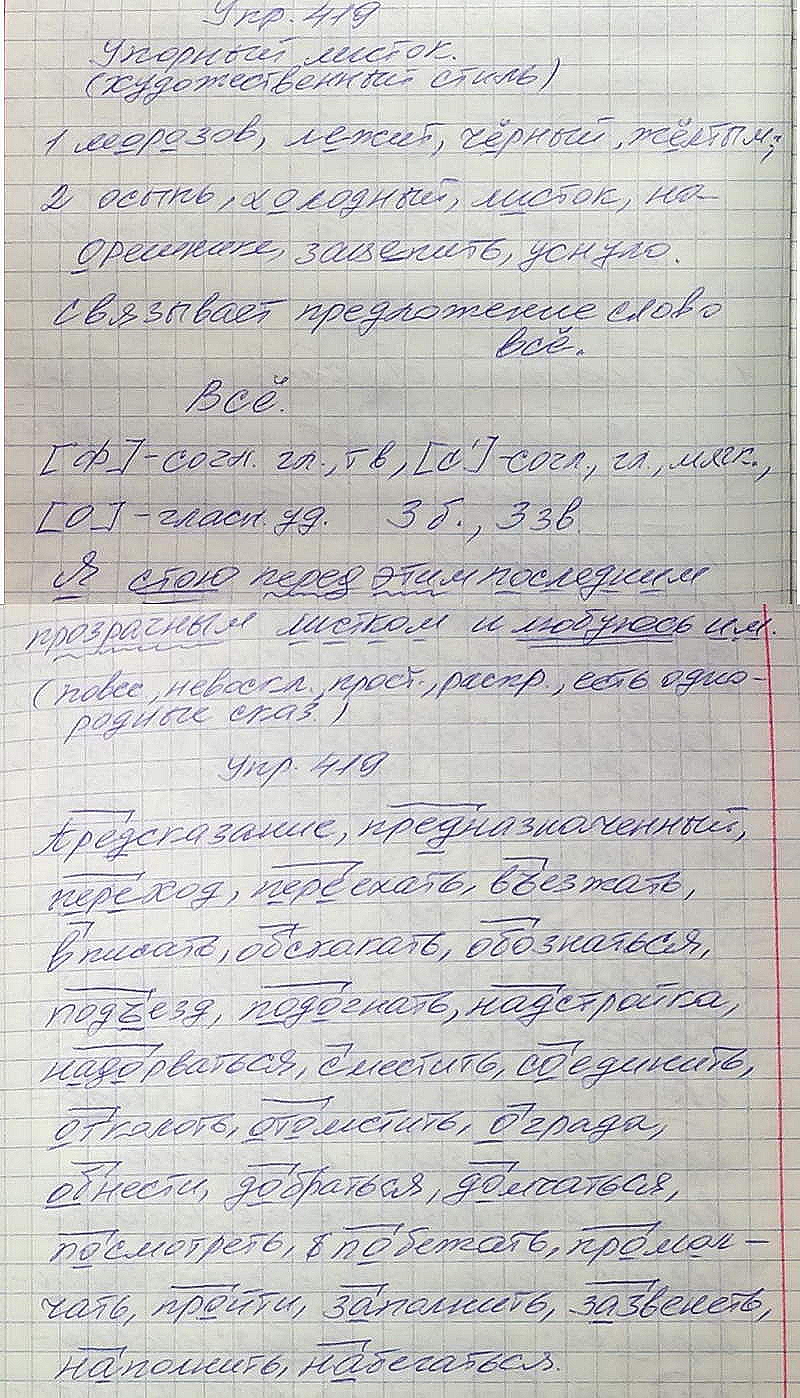 Упр. 419
Упорный листок.
(художественный стиль)
1 морозов, лежит, чёрный, жёлтым;
2 осыпь, холодный, листок, на
орешнике, зацепить, уснуло.
Связывает предложение слово
всё.
Всё.
[ф]-согл. гл., тв, [с']-согл., гл., мягк.,
[о]-гласн. уд. 3 б., 3 зв.
Я стою перед этим последним
прозрачным листком и любуюсь им.
(повес, невоскл., прост., распр., есть одно-
родные сказ.)
Упр. 419
Предсказание, предназначенный,
переход, переехать, въезжать,
вписать, обскакать, обознаться,
подъезд, подогнать, надстройка,
надорваться, сместить, соединить,
отколоть, отомстить, ограда,
обнести, добраться, домчаться,
посмотреть, побежать, промол-
чать, пройти, заполнить, зазвенеть,
наполнить, набегаться.